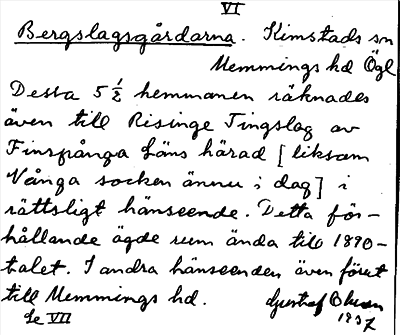 VI
Bergslagsgårdarna. Kimstads sn
Memmings hd Ögl
Dessa 5 1/2 hemmanen räknades
även till Risinge Tingslag av
Finspånga Läns härad [liksom
Vånga socken ännu i dag] i
rättsligt hänseende. Detta för-
hållande ägde rum ända till 1890-
talet. I andra hänseenden även förut
till Memmings hd. Gustaf
Se VII 1937